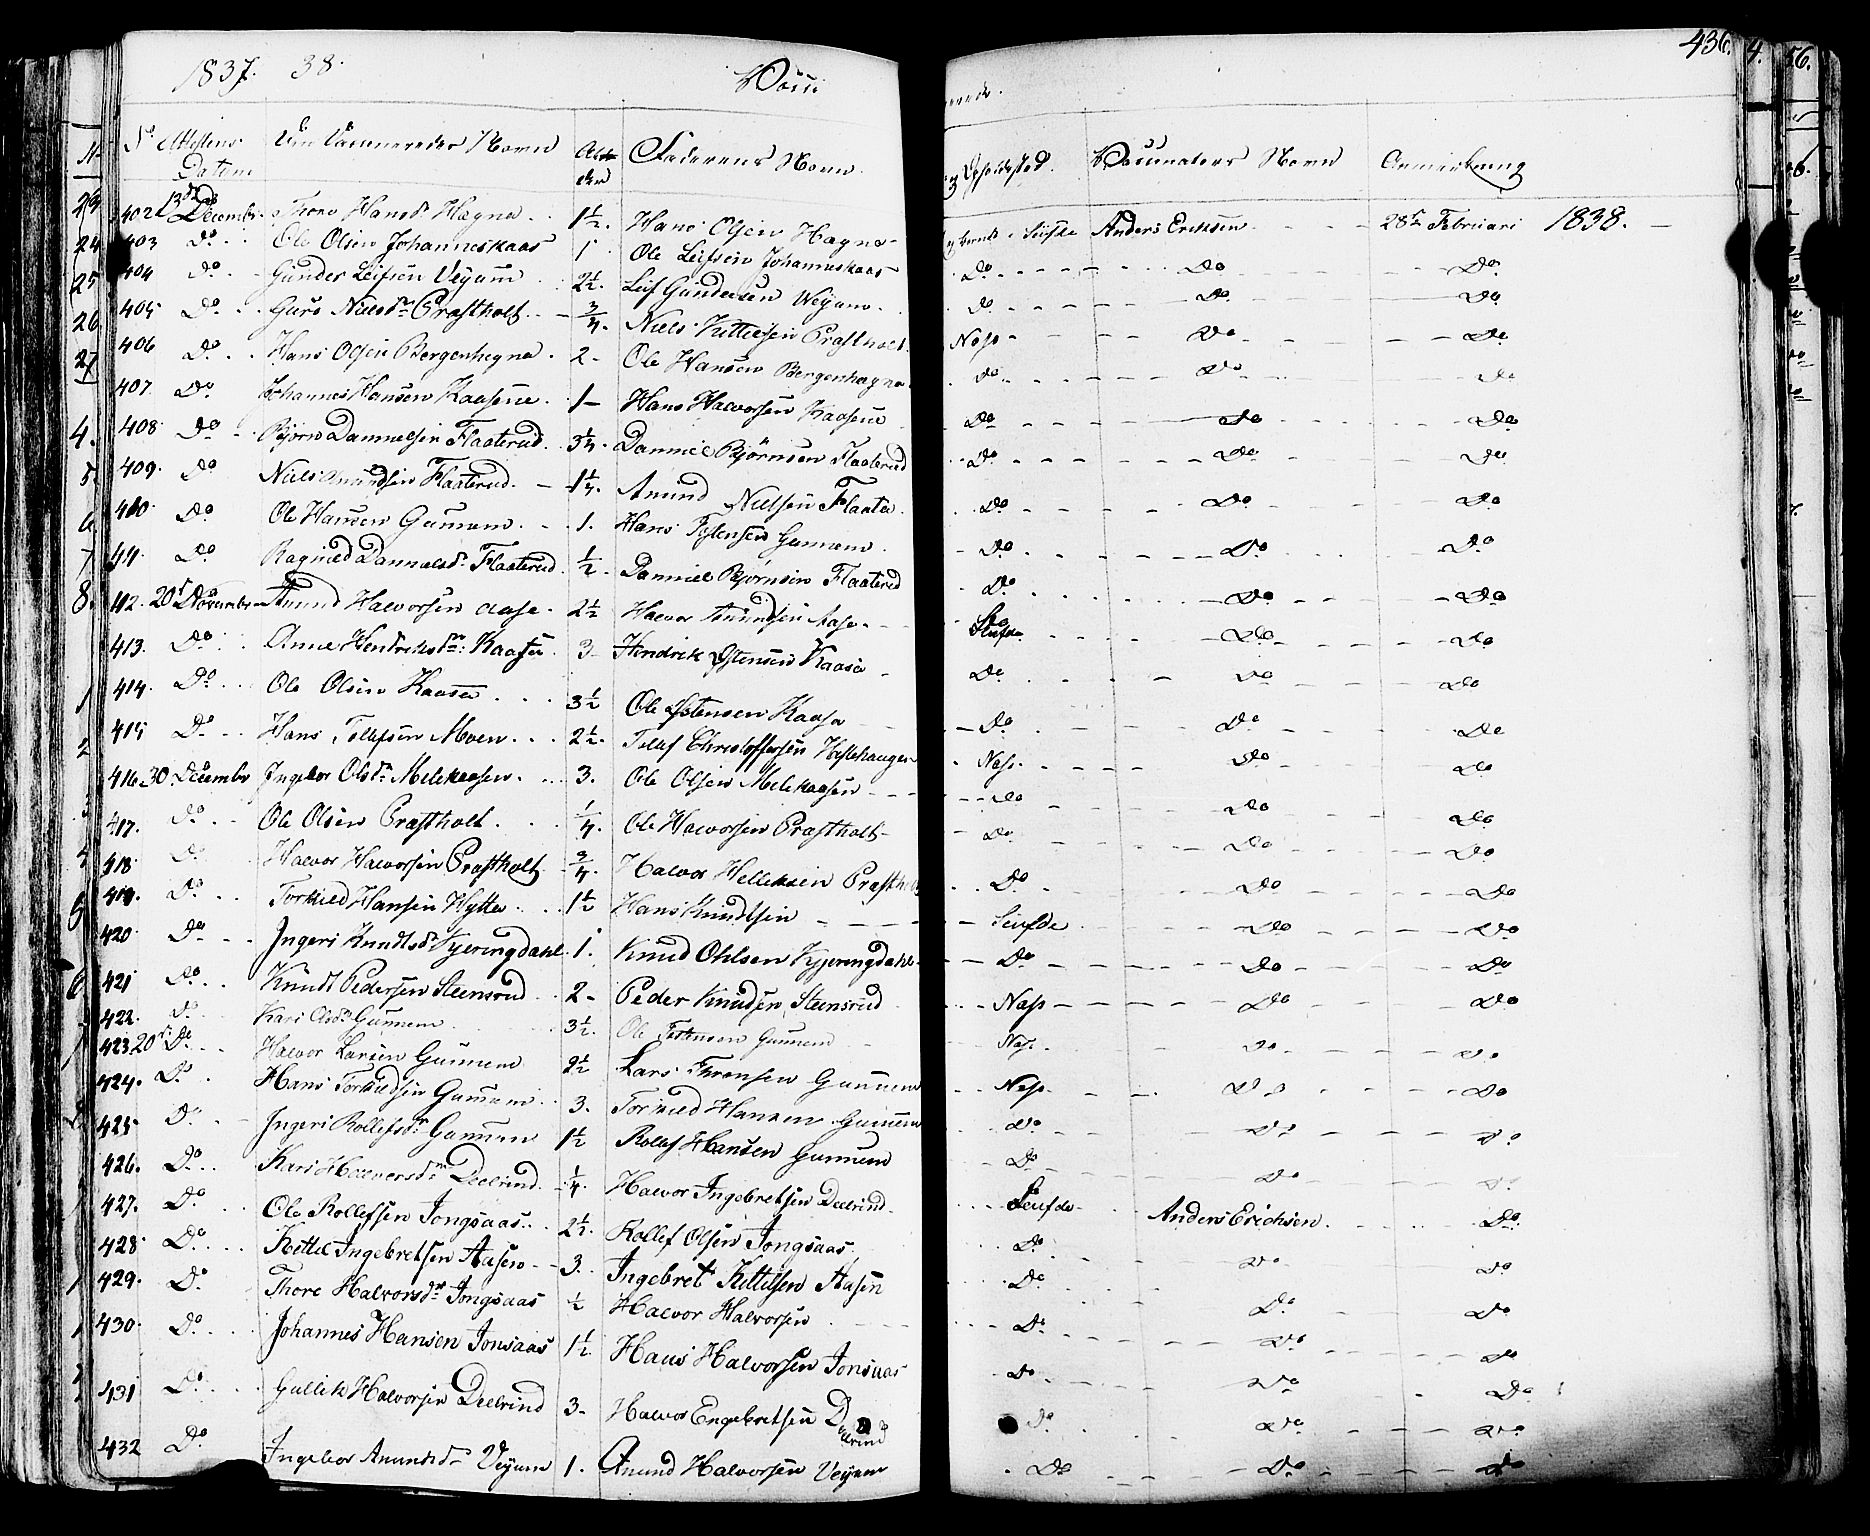 1837. 38.
436.
No Attestens Datum
Navn
Alderen
Faderens Navn
Opholdssted.
Vaccinateurs Navn
Anmærkning
402 13de Decembr. Thore Hansdr Hagna 1½. Hans Olsen Hagna Anders Eriksen 28de Februari 1838.
403 Do Ole Olsen Johanneskaas 1 Ole Leifsen Johanneskaas Do Do Do
404 Do Gunder Leifsen Veyum 2½. Leif Gundersen Weyum Do Do Do
405 Do Guro Nielsdr Prastholt ¾ Niels Kittelsen Prastholt Næss Do Do
406 Do Hans Olsen Bergenhegna 2 Ole Hansen Bergenhagna Do Do Do
407 Do Johannes Hansen Kaasene 1 Hans Halvorsen Kaasene Do Do Do
408 Do Bjørn Dannielsen Flaaterud 3¼ Danniel Bjørnsen Flaaterud Do Do Do
409 Do Niels Anundsen Flaaterud 1¼ Anund Nielsen Flaate Do Do Do
410 Do Ole Hansen Gunnem 1. Hans Tostensen Gunnem Do Do Do
411 Do Ragnild Dannielsdr Flaaterud ½ Danniel Bjørnsen Flaaterud Do Do Do
412. 20de Novembr Anund Halvorsen Aase 2½ Halvor Anundsen Aase Seufde Do Do
413. Do Anne Hendriksdr Kaasa 3 Hendrik Østensen Kaasa Do Do Do
414. Do Ole Olsen Kaasa 3½ Ole Østensen Kaasa Do Do Do
415 Do Hans Tellefsen Moen 2½. Tellef Christoffersen Heslehaugen Næss Do Do
416. 30 Decembr Ingebor Olsdr Melekaasen 3. Ole Olsen Melekaasen Do Do Do
417. Do Ole Olsen Prastholt ¼. Ole Halvorsen Prastholt Do Do Do
418 Do Halvor Halvorsen Prastholt ¾. Halvor Helleksen Prastholt Do Do Do
419. Do Torkild Hansen Hytta 1½ Hans Knudtsen Seufde Do Do
420 Do Ingeri Knudtsdr Kjeringdahl 1. Knud Ohlsen Kjeringdahl Do Do Do
421 Do Knudt Pedersen Steensrud 2 Peder Knudsen Steensrud Næss Do Do
422. Do Kari Olsdr Gunnem 3½. Ole Tostensen Gunnem Næss Do Do
423 20de Do Halvor Larsen Gunnem 2½ Lars Thronsen Gunnem Næss Do Do
424. Do Hans Torkildsen Gunnem 3. Torkild Hansen Gunnem Do Do Do
425 Do Ingeri Rollefsdr Gunnem 1½ Rollef Hansen Gunnem Do Do Do
426. Do Kari Halvorsdr Deelrind ¼ Halvor Ingebretsen Deelrind Seufde Anders Erichsen Do
427. Do Ole Rollefsen Jongsaas 2½. Rollef Olsen Jongsaas Do Do Do
428 Do Kettel Ingebretsen Aasen 3. Ingebret Kittelsen Aasen Do Do Do
429. Do Thore Halvorsdr Jongsaas ½ Halvor Halvorsen Do Do Do
430 Do Johannes Hansen Jonsaas 1½. Hans Halvorsen Jonsaas Do Do Do
431 Do Gullik Halvorsen Deelrind 3 Halvor Engebretsen Deelrind Do Do Do
432 Do Ingebor Anundsdr Veyum 1. Anund Halvorsen Veyum Do Do Do